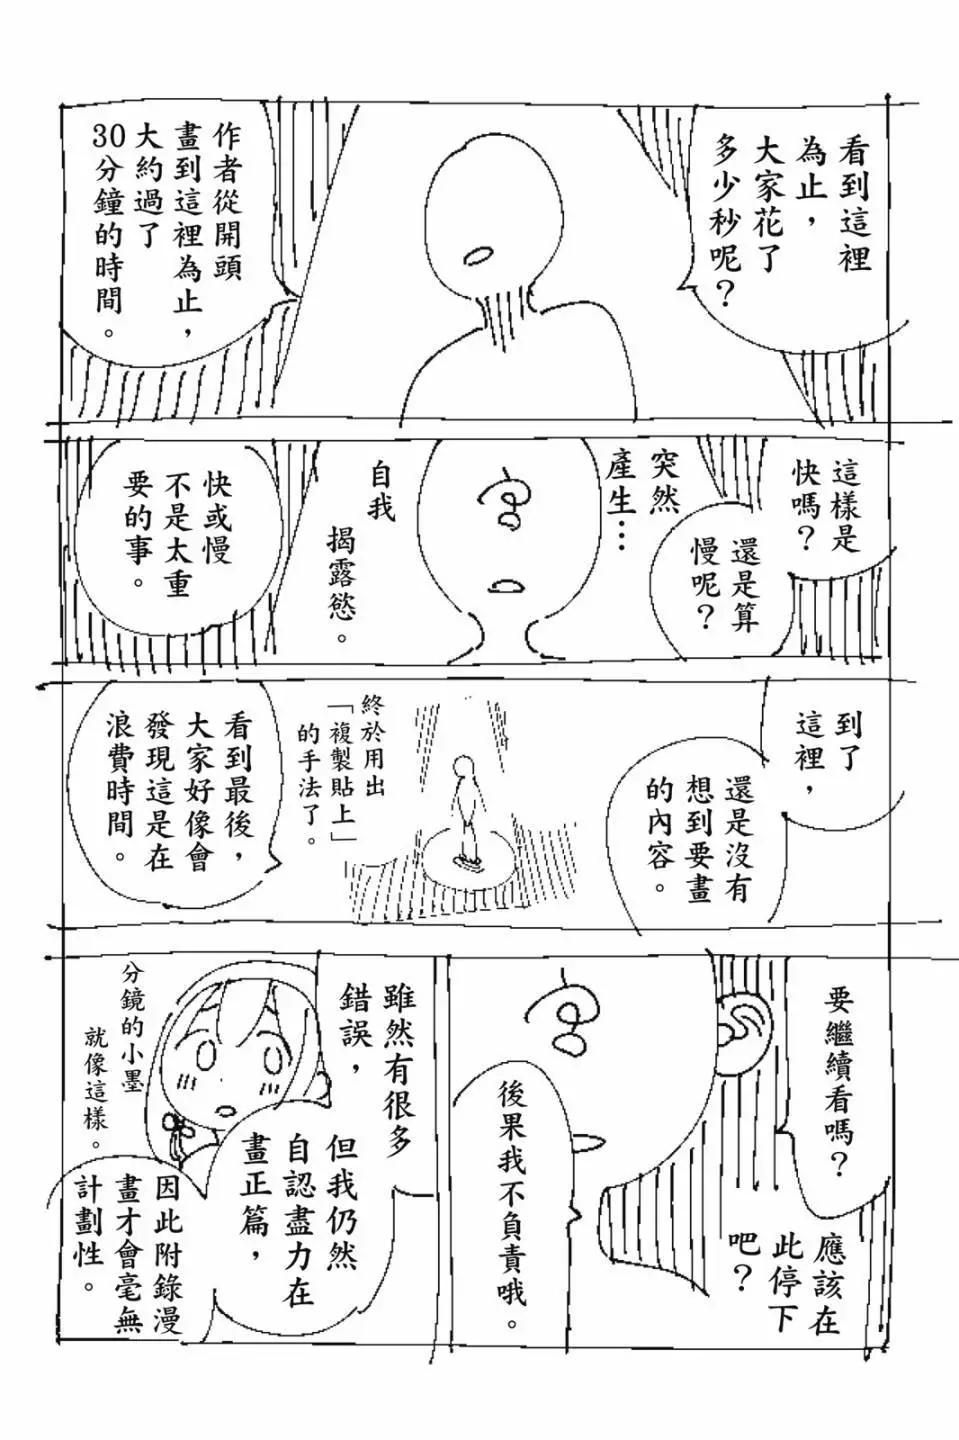 看到這裡
為止，
大家花了
多少秒呢？
作者從開頭
畫到這裡為止，
大約過了
30分鐘的時間。
這樣是
快嗎？
還是算
慢呢？
突然
產生…
自我
揭露慾。
快或慢
不是太重
要的事。
到了
這裡，
還是沒有
想到要畫
的內容。
終於用出
「複製貼上」
的手法了。
看到最後，
大家好像會
發現這是在
浪費時間。
要繼續看嗎？
應該在
此停下
吧？
後果我不負責哦。
雖然有很多
錯誤，
但我仍然
自認盡力在
畫正篇，
分鏡的小墨
就像這樣。
因此附錄漫
畫才會毫無
計劃性。